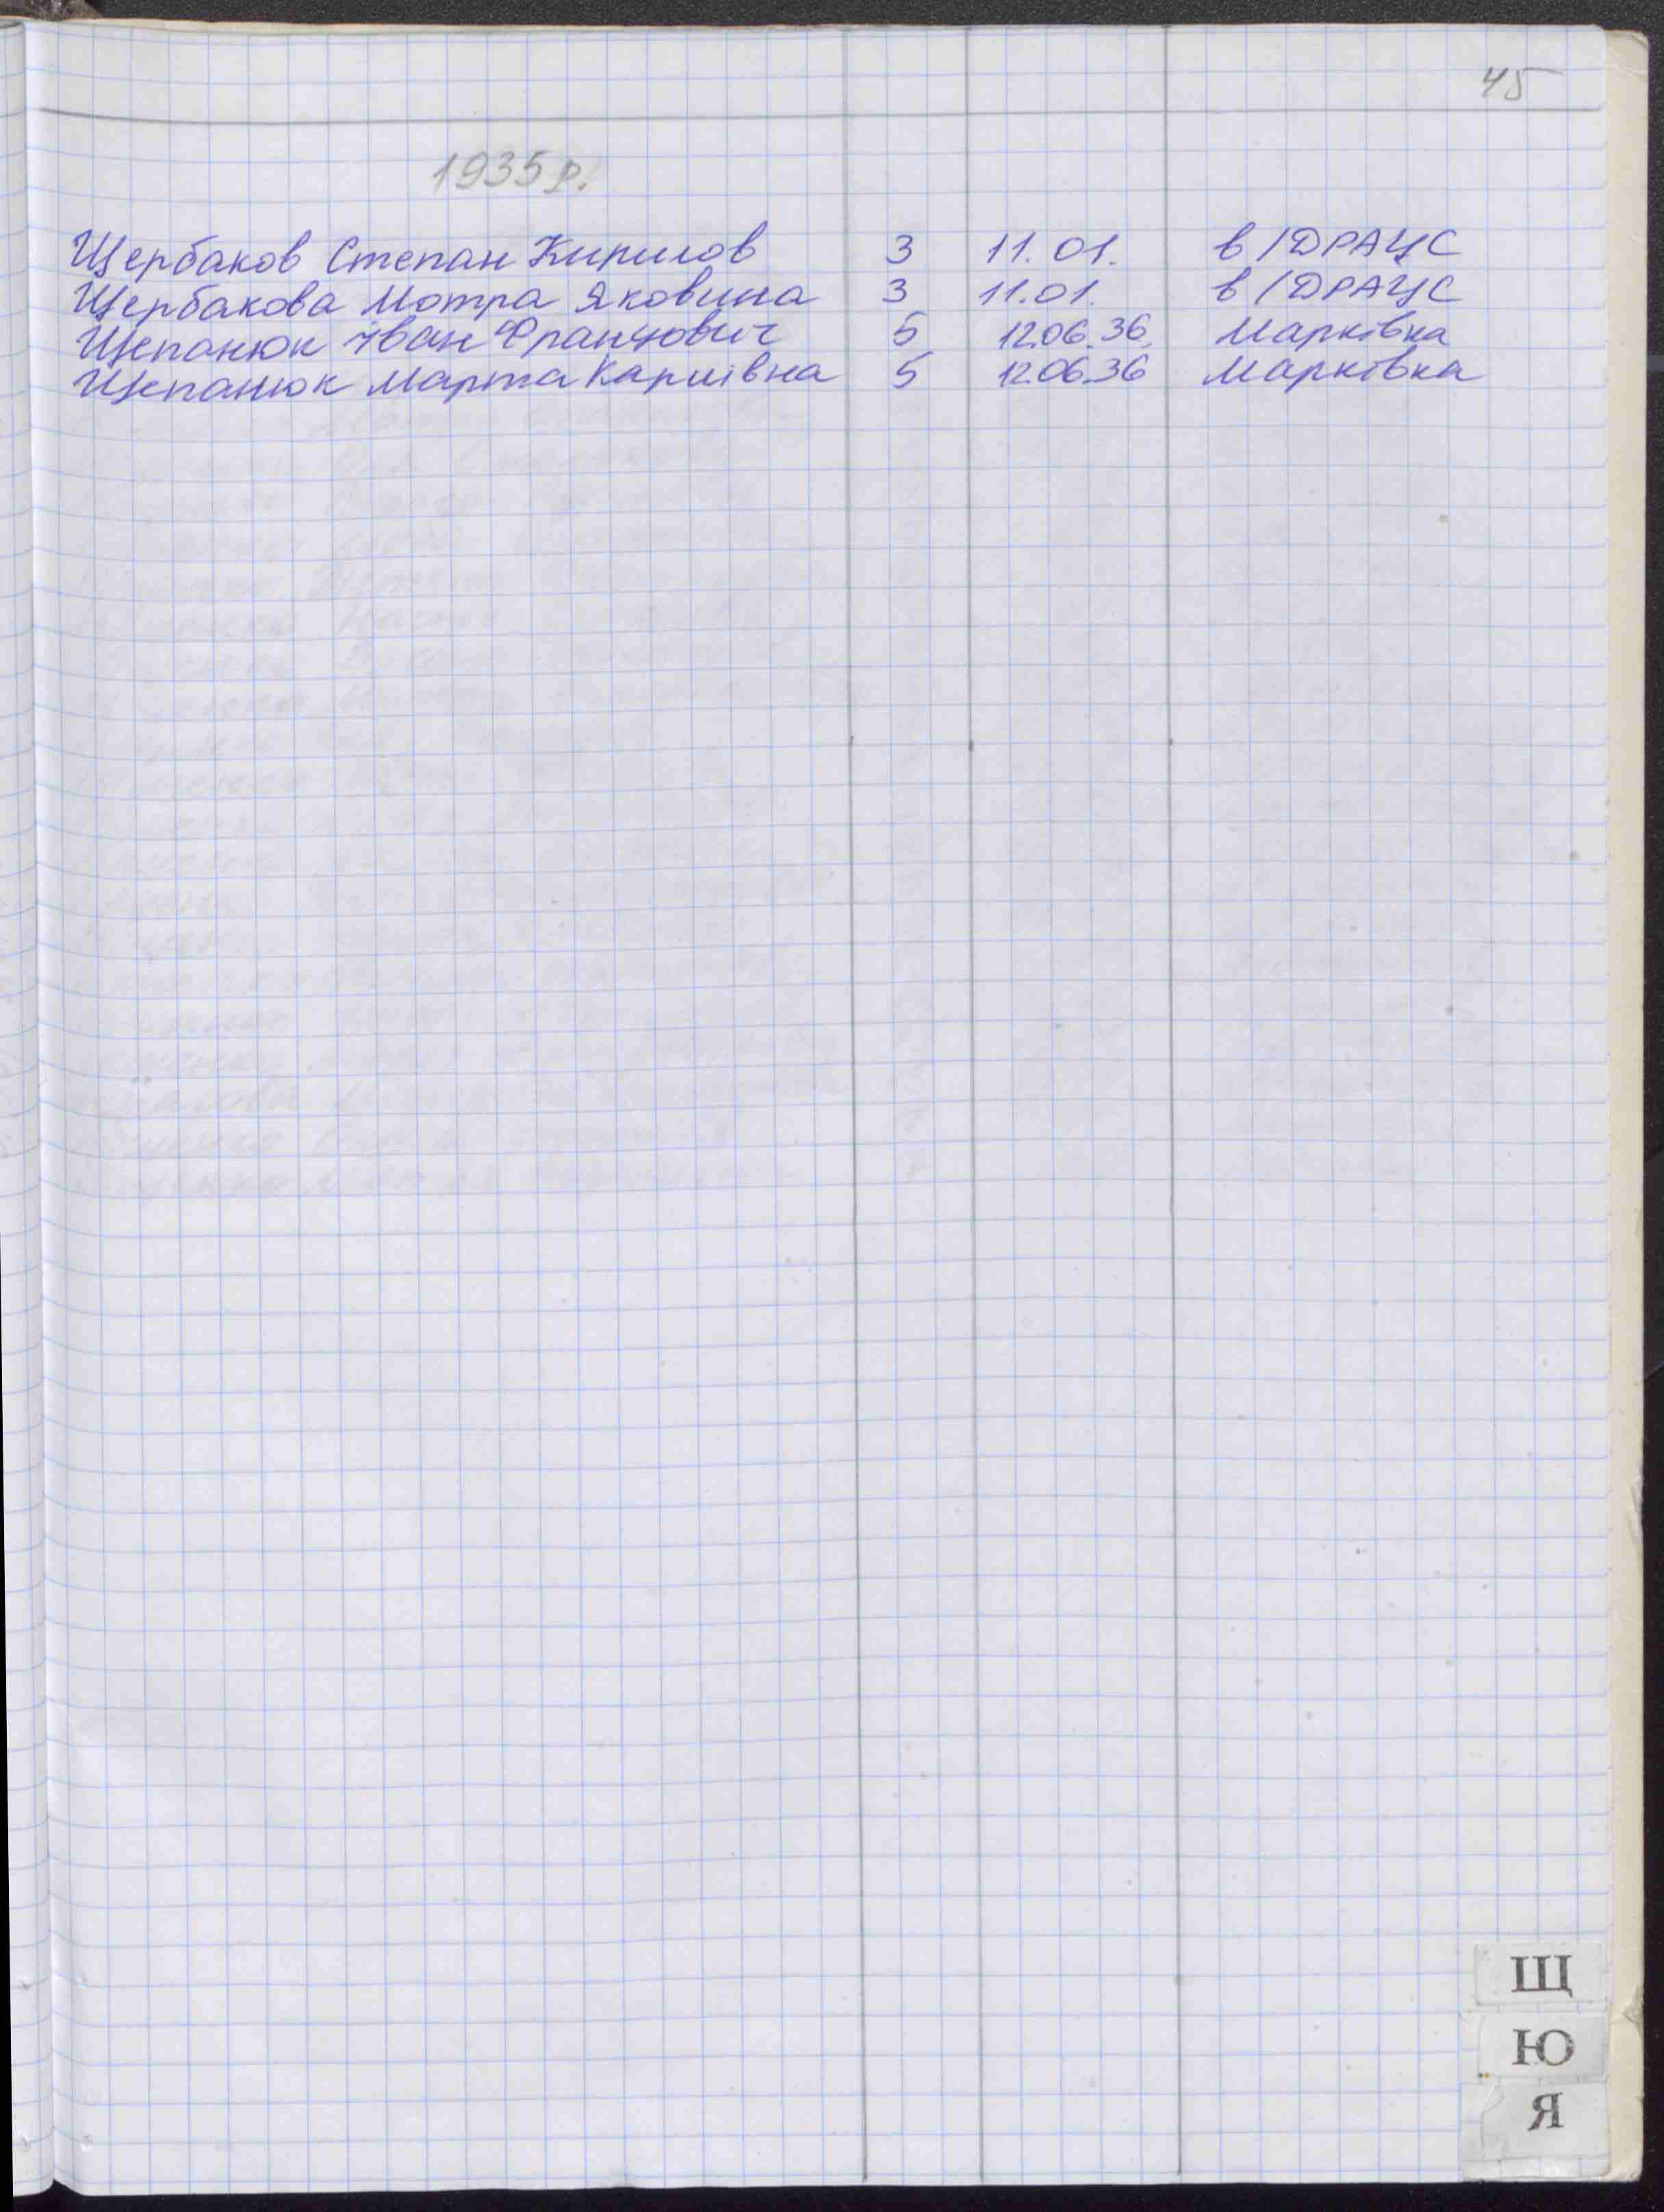 45
1935 р.
Щербаков Степан Кирилов 3 11.01. в/ДРАЦС
Щербакова Мотра Яковина 3 11.01. в/ДРАЦС
Щепанюк Іван Францович 5 12.06.36. Марківка
Щепанюк Марта Карпівна 5 12.06.36 Марківка
Щ
Ю
Я